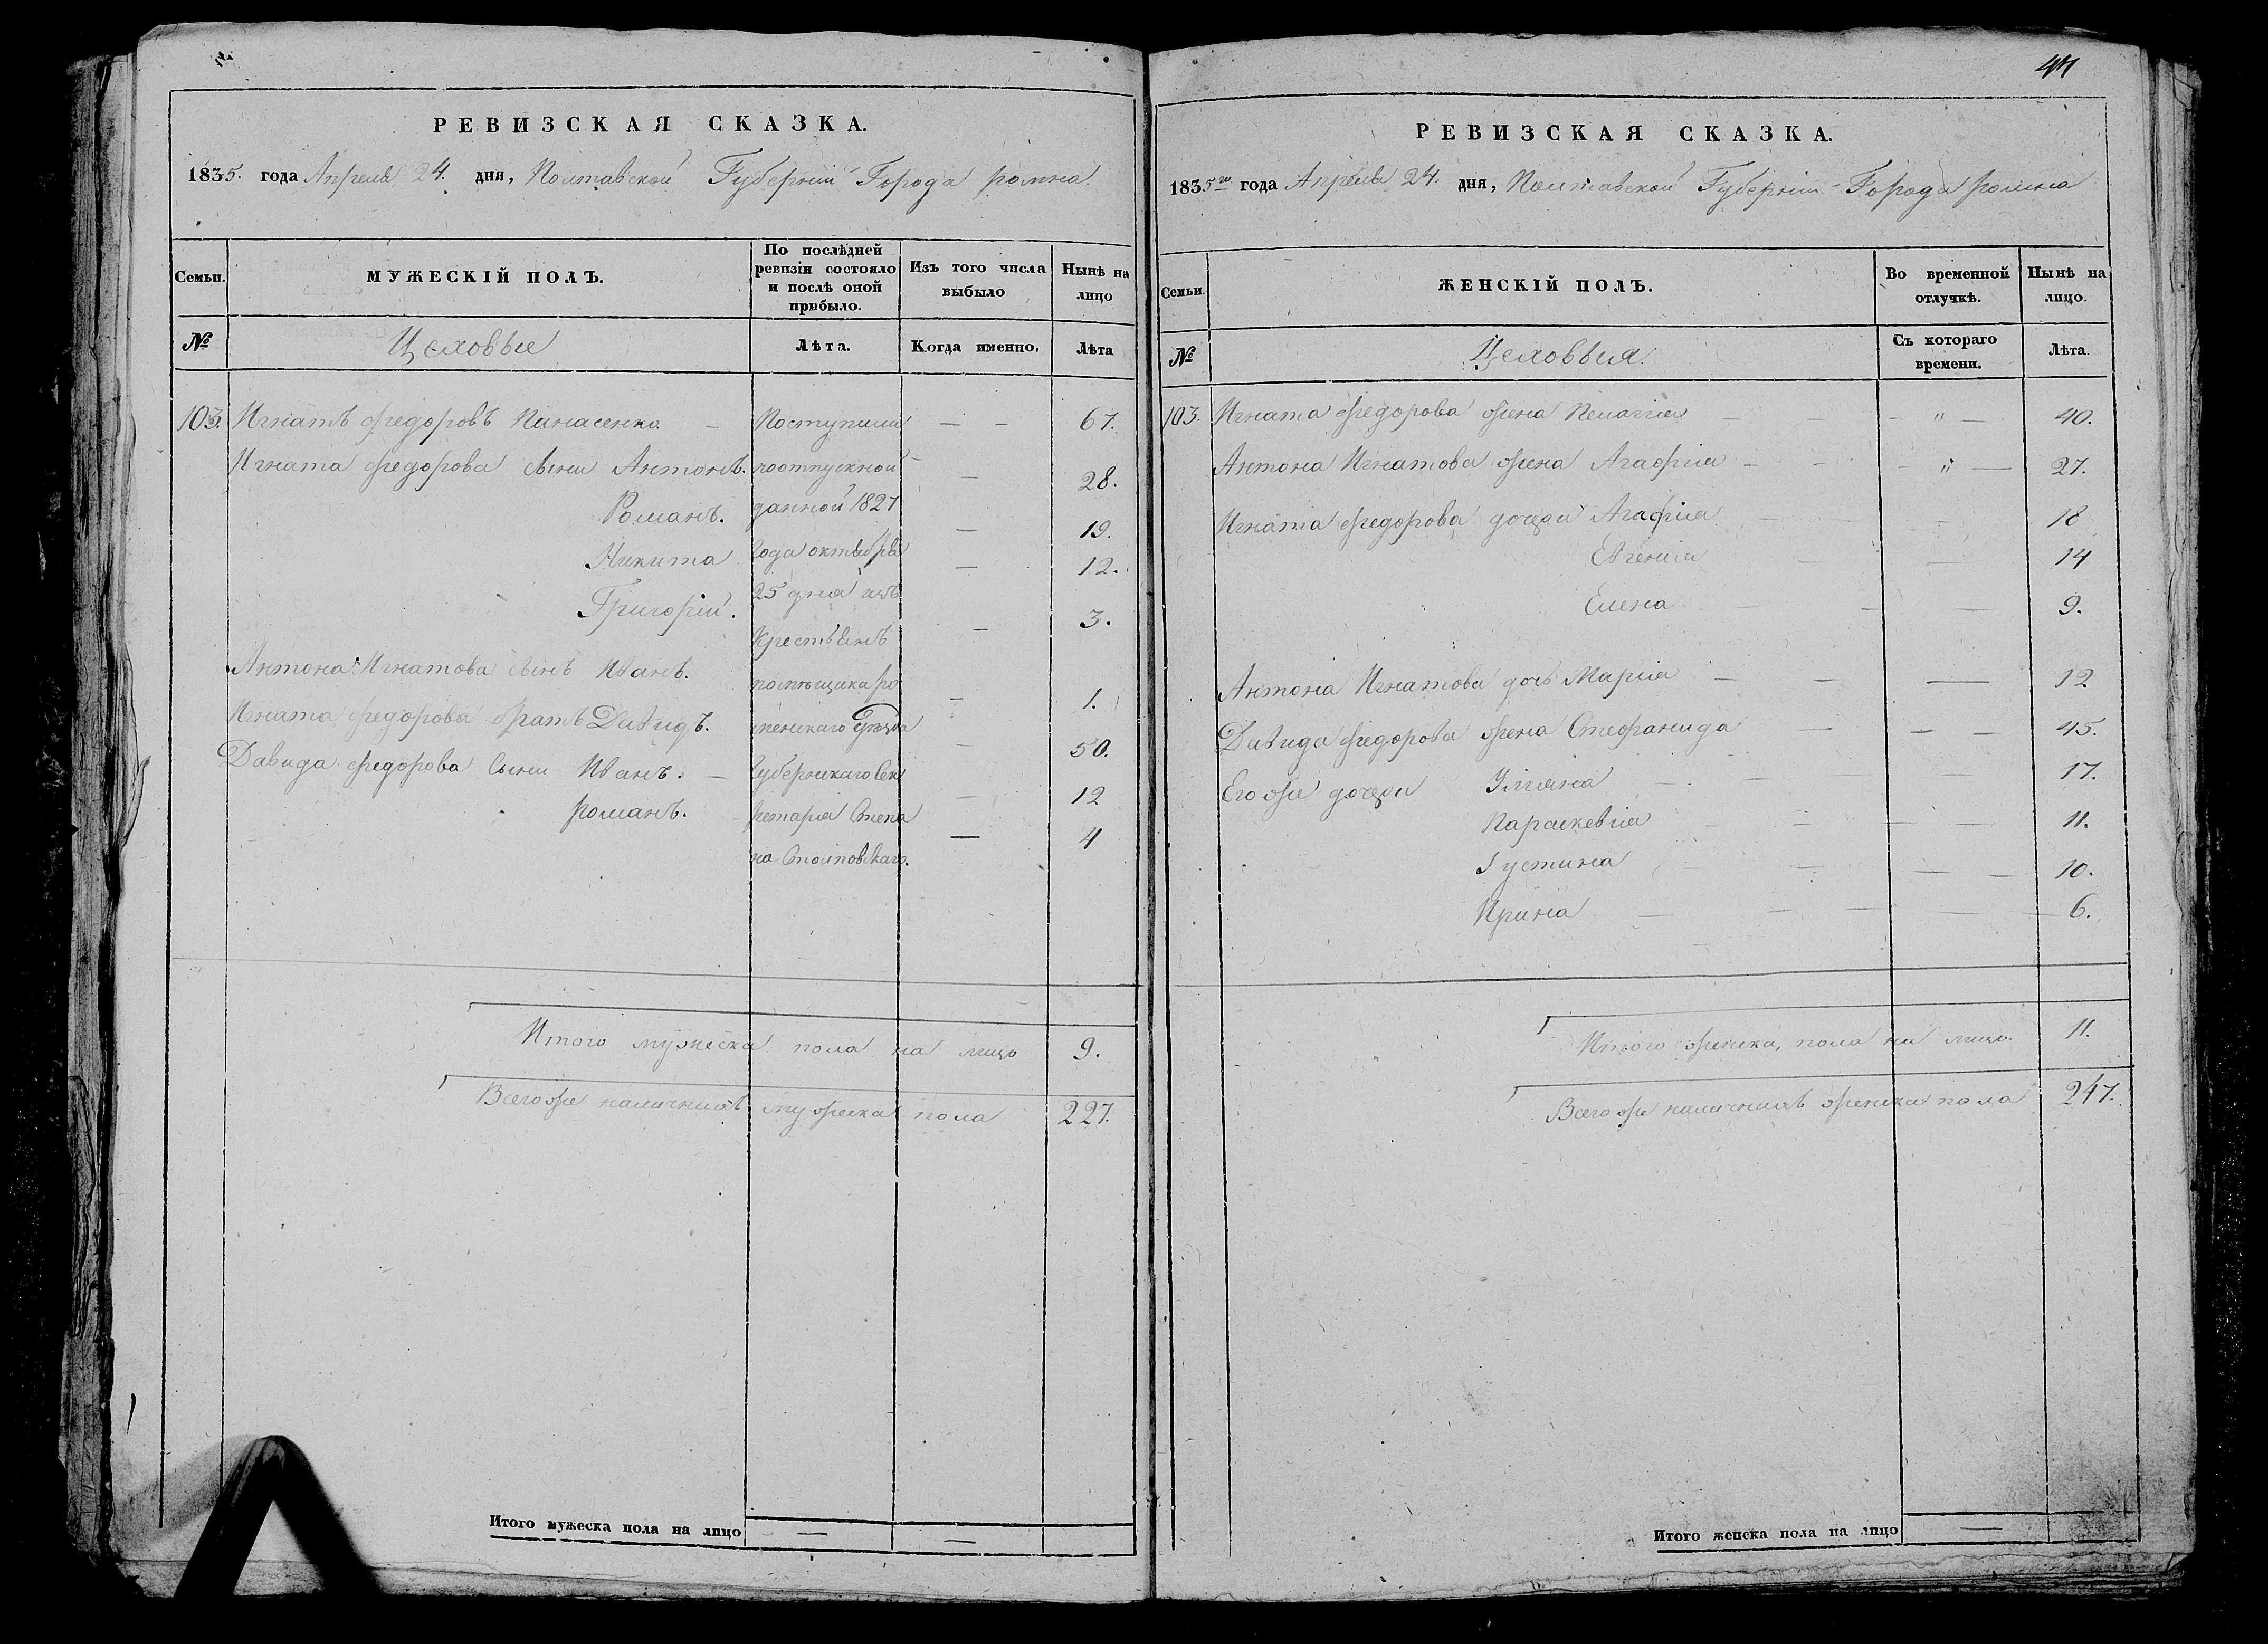 РЕВИЗСКАЯ СКАЗКА.
1835. года Апреля 24. дня, Полтавской Губернiи Города ромна.
Семьи. МУЖЕСКIЙ ПОЛЪ. По послѣдней ревизiи состояло и послѣ оной прибыло. Изъ того числа выбыло Нынѣ на лицо
№ Цеховые Лѣта. Когда именно. Лѣта
103. Игнатъ федоровъ Панасенко — Поступили — — 67.
Игната федорова сыни Антонъ. поотпускной — 28.
Романъ. данной 1827 — 19.
Никита года октября — 12.
Григорiй. 25 дня изъ — 3.
Крестьянъ
Антона Игнатова сынъ Иванъ. помѣщика ро — 1.
Игната федорова братъ Давидъ. менскаго уезда — 50.
Давида федорова Сыни Иванъ. — Губернскаго Сек — 12
романъ. ретаря Степа — 4
на
Итого мужеска пола на лицо 9.
Всегоже наличнихъ мужеска пола 227.
Итого мужеска пола на лицо — —
РЕВИЗСКАЯ СКАЗКА.
1835го года Апреля 24. дня, Полтавской Губернiи Города ромна
Семьи. ЖЕНСКIЙ ПОЛЪ. Во временной отлучкѣ. Нынѣ на лицо.
№ Цеховыя Съ котораго времени. Лѣта.
103. Игната федорова жена Пелагiя — — " — 40.
Антона Игнатова жена Агафiя — — " — 27.
Игната федорова дочери Агафiя — 18
Евгенiя — — 14
Елена — — — 9.
Антона Игнатова дочь Марiя — — — 12
Давида федорова жена Стефанида — — — 45.
Его же дочери Улiяна — — — 17.
Параскевiя — — — — 11.
Iустина — — — — 10.
Ирина — — — — 6.
Итого женска, пола на лицо. 11.
Всего же наличнихъ женска пола 247.
Итого женска пола на лицо —